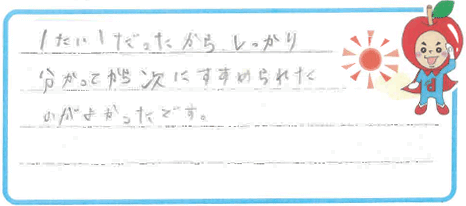 1たい1だったから、しっかり
分かってから次にすすめられた
のがよかったです。